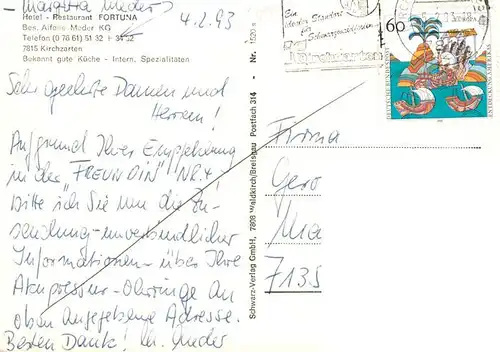 Margitta Meder 4.2.93
Hotel - Restaurant FORTUNA
Bes. Alfons Meder KG
Telefon (0 76 61) 51 32 + 34 52
7815 Kirchzarten
Bekannt gute Küche - Intern. Spezialitäten
Sehr geehrte Damen und
Herren!
Aufgrund Ihrer Empfehlung
in der "FREUNDIN" NR. 4
bitte ich Sie um die Zu-
sendung unverbindlicher
Informationen über Ihre
Akupressur-Ohrringe an
oben angegebene Adresse.
Besten Dank! M. Meder
Schwarz-Verlag GmbH, 7808 Waldkirch/Breisgau Postfach 314 - Nr. 1520
Ein
idealer Standort
für
Schwarzwaldferien
Kirchzarten
60
DEUTSCHE BUNDESPOST
Firma
Gero
7135